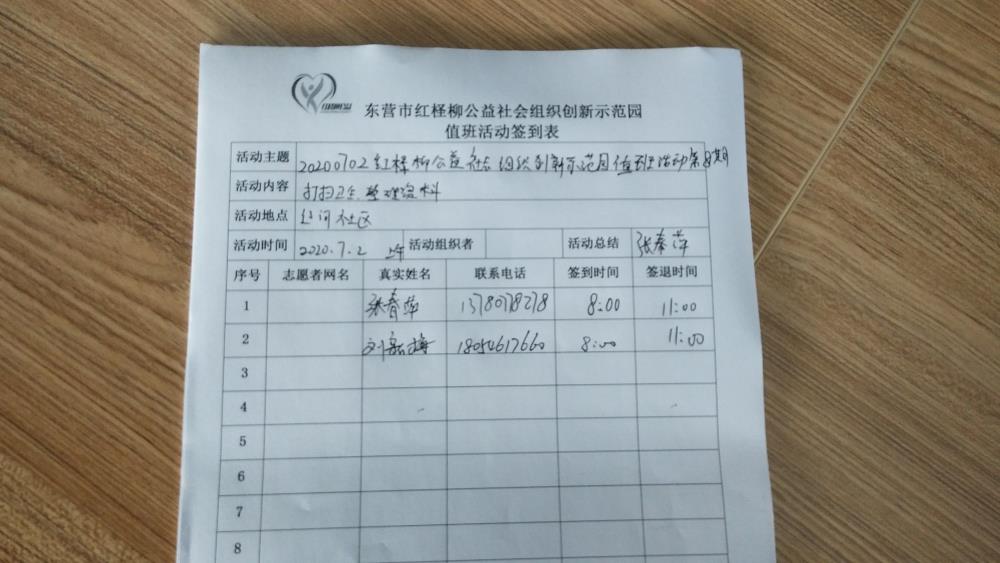 东营市红柽柳公益社会组织创新示范园
值班活动签到表
活动主题 20200702红柽柳公益社会组织创新示范园值班活动第8期
活动内容 打扫卫生.整理资料
活动地点 社区
活动时间 2020.7.2 上午 活动组织者 活动总结 张春萍
序号 志愿者网名 真实姓名 联系电话 签到时间 签退时间
1 张春萍 8:00 11:00
2 刘 梅 18054617660 8:00 11:00
3
4
5
6
7
8